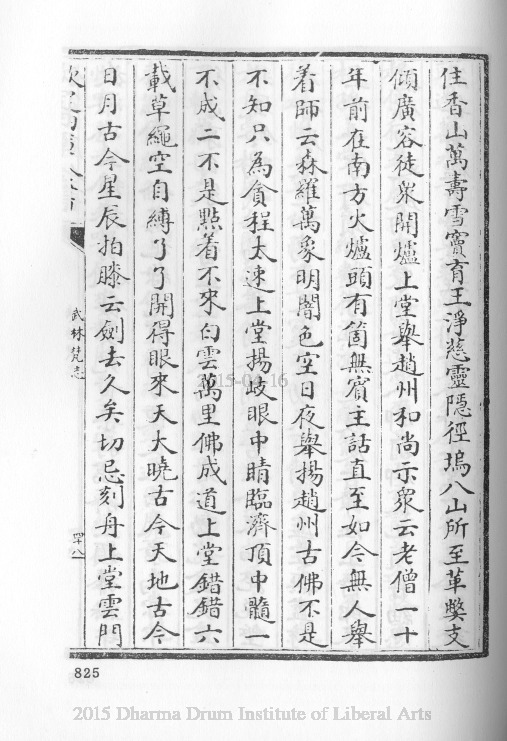 住香山萬壽雪竇育王淨慈靈隱徑塢八山所至革獘支
傾廣容徒衆開爐上堂舉趙州和尚示衆云老僧一十
年前在南方火爐頭有箇無賓主話直至如今無人舉
着師云森羅萬象明闇色空日夜舉揚趙州古佛不是
不知只為貪程太速上堂揚岐眼中睛臨濟頂中髓一
不成二不是點着不來白雲萬里佛成道上堂錯錯六
載草繩空自縛了了開得眼來天大曉古今天地古今
日月古今星辰拍膝云劍去久矣切忌刻舟上堂雲門
武林梵志
四十八
825
2015-04-16
2015 Dharma Drum Institute of Liberal Arts